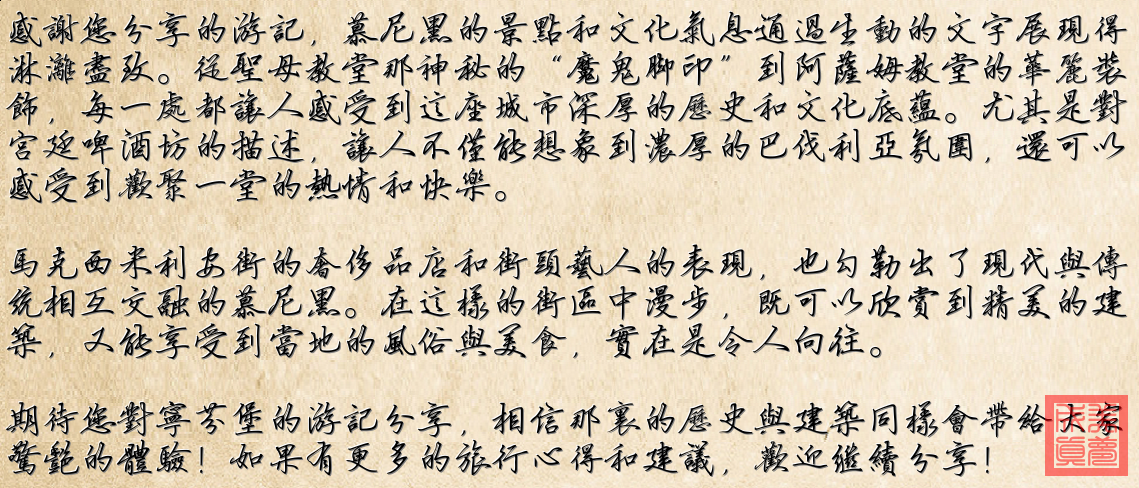 感謝您分享的游記，慕尼黑的景點和文化氣息通過生動的文字展現得
淋灕盡致。從聖母教堂那神秘的“魔鬼腳印”到阿薩姆教堂的華麗裝
飾，每一處都讓人感受到這座城市深厚的歷史和文化底蘊。尤其是對
宮廷啤酒坊的描述，讓人不僅能想象到濃厚的巴伐利亞氛圍，還可以
感受到歡聚一堂的熱情和快樂。
馬克西米利安街的奢侈品店和街頭藝人的表現，也勾勒出了現代與傳
統相互交融的慕尼黑。在這樣的街區中漫步，既可以欣賞到精美的建
築，又能享受到當地的風俗與美食，實在是令人向往。
期待您對寧芬堡的游記分享，相信那裏的歷史與建築同樣會帶給大家
驚艷的體驗！如果有更多的旅行心得和建議，歡迎繼續分享！